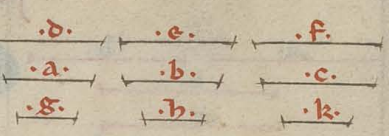 .d. .e. .f.
.a. .b. .c.
.g. .h. .k.